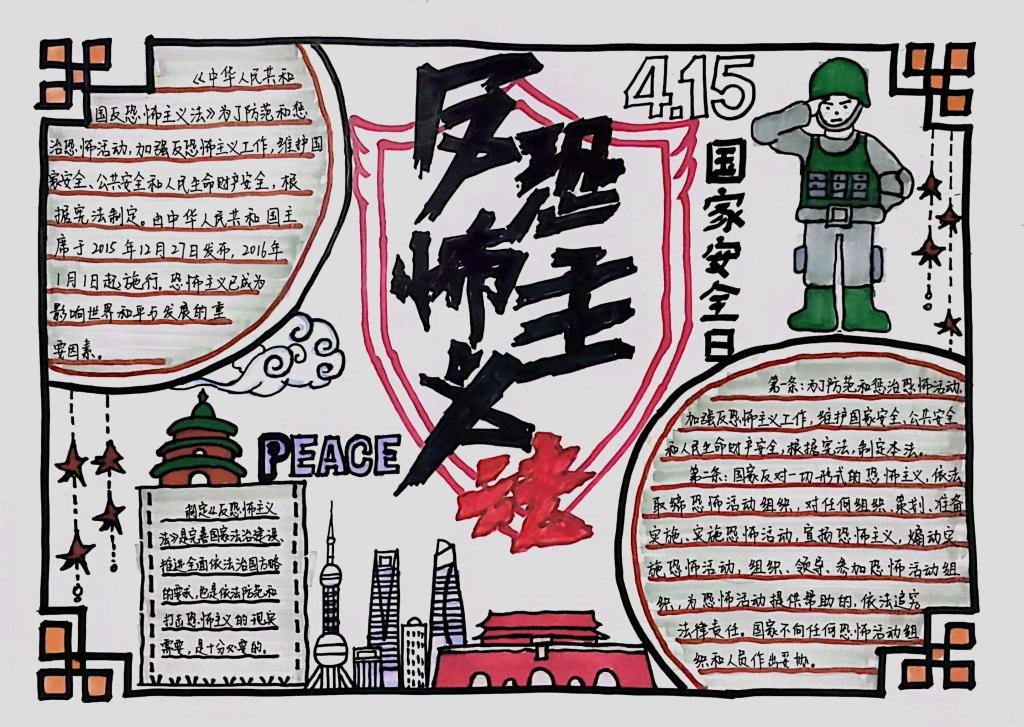 《中华人民共和
国反恐怖主义法》为了防范和惩
治恐怖活动,加强反恐怖主义工作,维护国
家安全、公共安全和人民生命财产安全,根
据宪法制定。由中华人民共和国主
席于2015年12月27日发布,2016年
1月1日起施行。恐怖主义已成为
影响世界和平与发展的重
要因素。
反恐
怖主
义法
4.15
国家安全日
PEACE
制定《反恐怖主义
法》是完善国家法治建设、
推进全面依法治国方略
的要求,也是依法防范和
打击恐怖主义的现实
需要,是十分必要的。
第一条:为了防范和惩治恐怖活动,
加强反恐怖主义工作,维护国家安全、公共安全
和人民生命财产安全,根据宪法,制定本法。
第二条:国家反对一切形式的恐怖主义,依法
取缔恐怖活动组织,对任何组织、策划、准备
实施、实施恐怖活动,宣扬恐怖主义,煽动实
施恐怖活动,组织、领导、参加恐怖活动组
织,为恐怖活动提供帮助的,依法追究
法律责任。国家不向任何恐怖活动组
织和人员作出妥协。